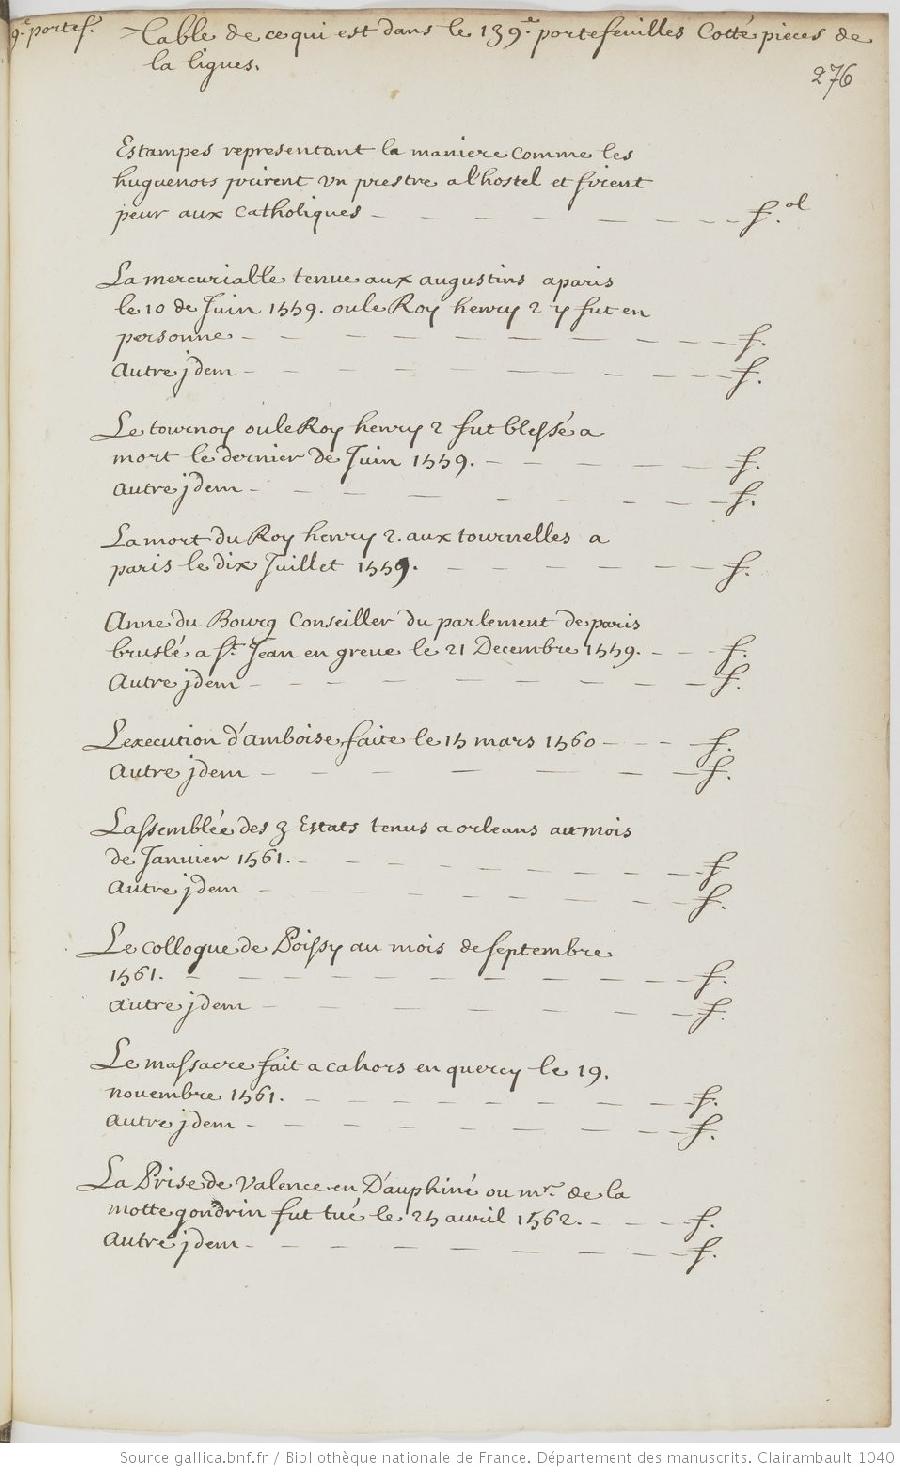 9.e portef.
Table de ce qui est dans le 139.e portefeuilles Cotté pieces de
la ligues.
276
Estampes representant la maniere comme les
huguenots prirent vn prestre a l'hostel et firent
peur aux catholiques - - - - - - - f.ol
La mercurialle tenue aux augustins a paris
le 10 de Juin 1559. ou le Roy henry 2 y fut en
personne - - - - - - - - f.
autre jdem - - - - - - - - f.
Le tournoy ou le Roy henry 2 fut blessé a
mort le dernier de Juin 1559. - - - - - f.
autre jdem - - - - - - - - f.
La mort du Roy henry 2. aux tournelles a
paris le dix Juillet 1559. - - - - - f.
Anne du Bourg Conseiller du parlement de paris
bruslé a St. Jean en greue le 21 Decembre 1559. - - - f.
Autre jdem - - - - - - - - f.
L'execution d'amboise faite le 15 mars 1560 - - - - f.
autre jdem - - - - - - f.
L'assemblée des 3 Estats tenus a orleans au mois
de Janvier 1561. - - - - - - - f
autre jdem - - - - - - - f.
Le colloque de Poissy au mois de septembre
1561. - - - - - - - - - f.
autre jdem - - - - - - - f.
Le massacre fait a cahors en quercy le 19.
nouembre 1561. - - - - - - - f.
autre jdem - - - - - - - - f.
La Prise de Valence en Dauphiné ou mr. de la
motte gondrin fut tué le 25 auril 1562. - - - - f.
autre jdem - - - - - - - - f.
Source gallica.bnf.fr / Bibliothèque nationale de France. Département des manuscrits. Clairambault 1040